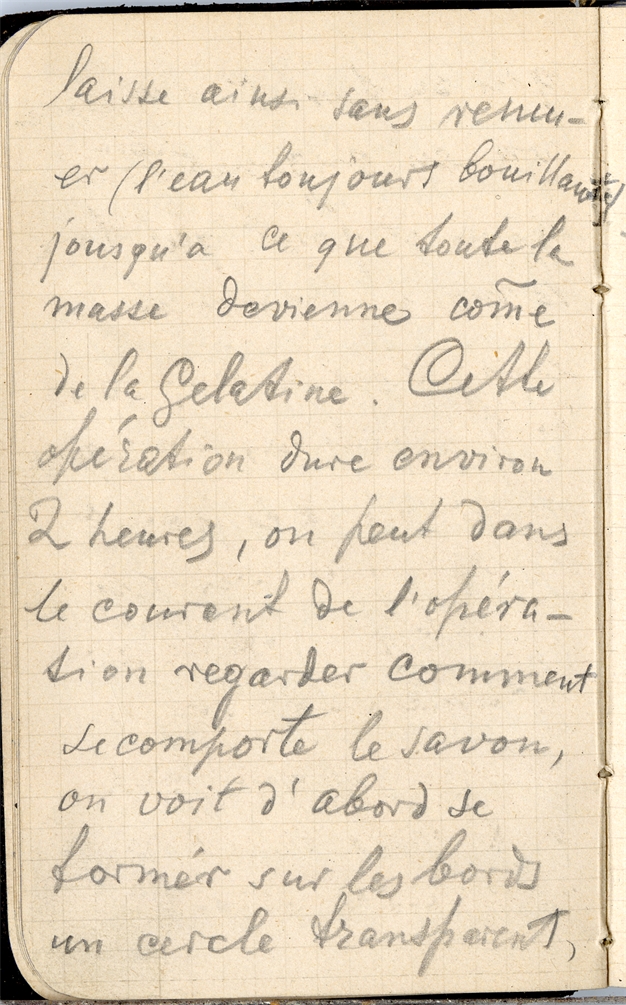 laisse ainsi sans remu-
er (l'eau toujours bouillante)
jousqu'a ce que toute la
masse devienne com̃e
de la Gelatine. Cette
opération dure environ
2 heures, on peut dans
le courant de l'opéra-
tion regarder comment
se comporte le savon,
on voit d'abord se
formér sur les bords
un cercle transparent,